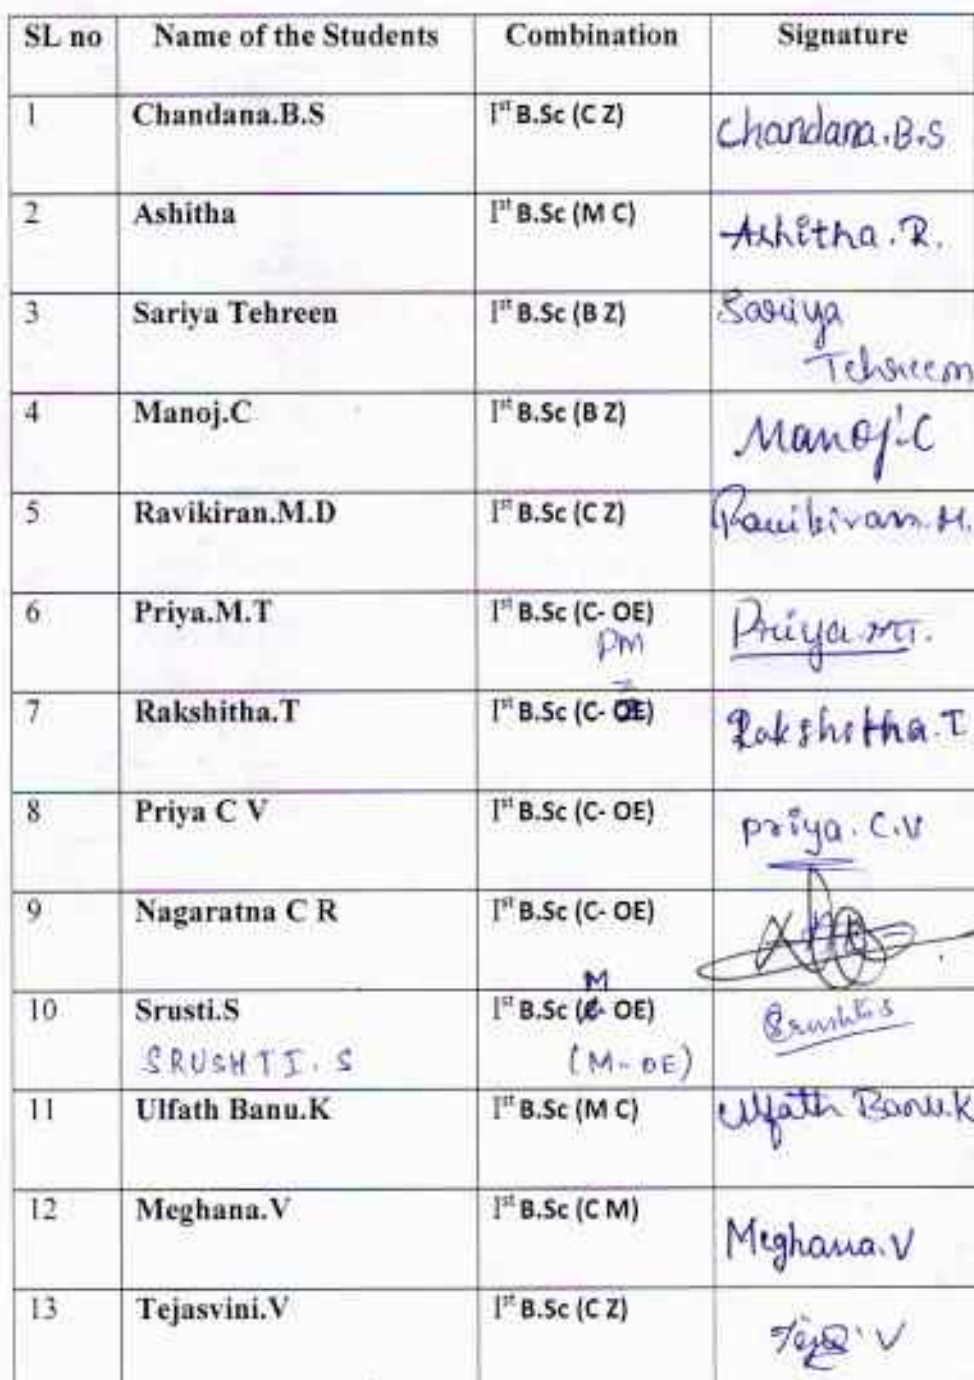 SL no Name of the Students Combination Signature
1 Chandana.B.S Ist B.Sc (C Z) Chandana.B.S
2 Ashitha Ist B.Sc (M C) Ashitha.R.
3 Sariya Tehreen Ist B.Sc (B Z) Sariya
Tehreem
4 Manoj.C Ist B.Sc (B Z) Manoj.C
5 Ravikiran.M.D Ist B.Sc (C Z) Ravikiran.M.
6 Priya.M.T Ist B.Sc (C- OE) Priya.M.T.
PM
7 Rakshitha.T Ist B.Sc (C- Rakshitha.T
8 Priya C V Ist B.Sc (C- OE) priya.C.V
9 Nagaratna C R Ist B.Sc (C- OE)
M
10 Srusti.S Ist B.Sc (C- OE) Srushti.S
SRUSHTI.S (M-OE)
11 Ulfath Banu.K Ist B.Sc (M C) Ulfath Banu.K
12 Meghana.V Ist B.Sc (C M) Meghana.V
13 Tejasvini.V Ist B.Sc (C Z)